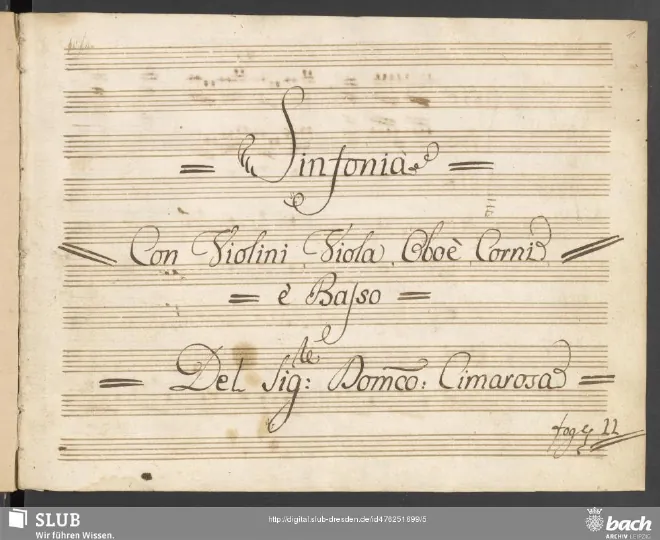 Sinfonia
Con Violini Viola Oboè Corni
è Basso
Del Sig:le Domco: Cimarosa
fog 11
SLUB
Wir führen Wissen.
http://digital.slub-dresden.de/id476251699/5
bach
ARCHIV LEIPZIG